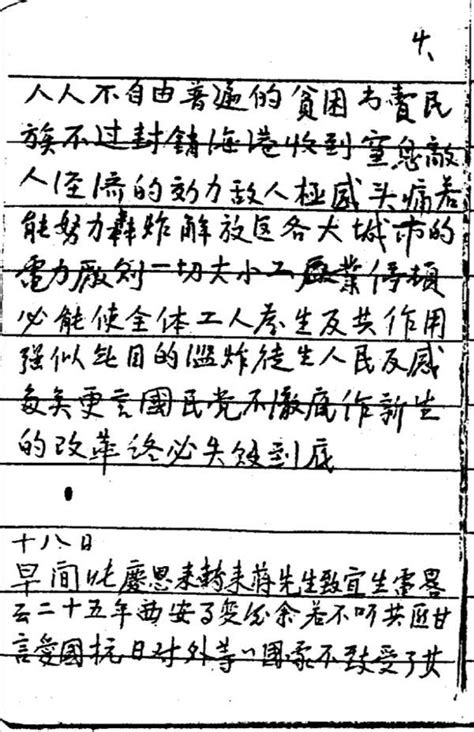 4、
人人不自由普遍的貧困与賣民
族不过封鎖海港收到窒息敵
人经济的効力敌人極感头痛若
能努力轟炸解放区各大城市的
電力廠則一切大小工廠業停頓
必能使全体工人发生反共作用
强似無目的滥炸徒生人民反感
更言國民党不徹底作新生
的改革终必失敗到底
十八日
早间慶恩来轉来蒋先生致宜生電畧
云二十五年西安事变后余若不听共匪甘
言愛國抗日对外等〃國家不致受了共